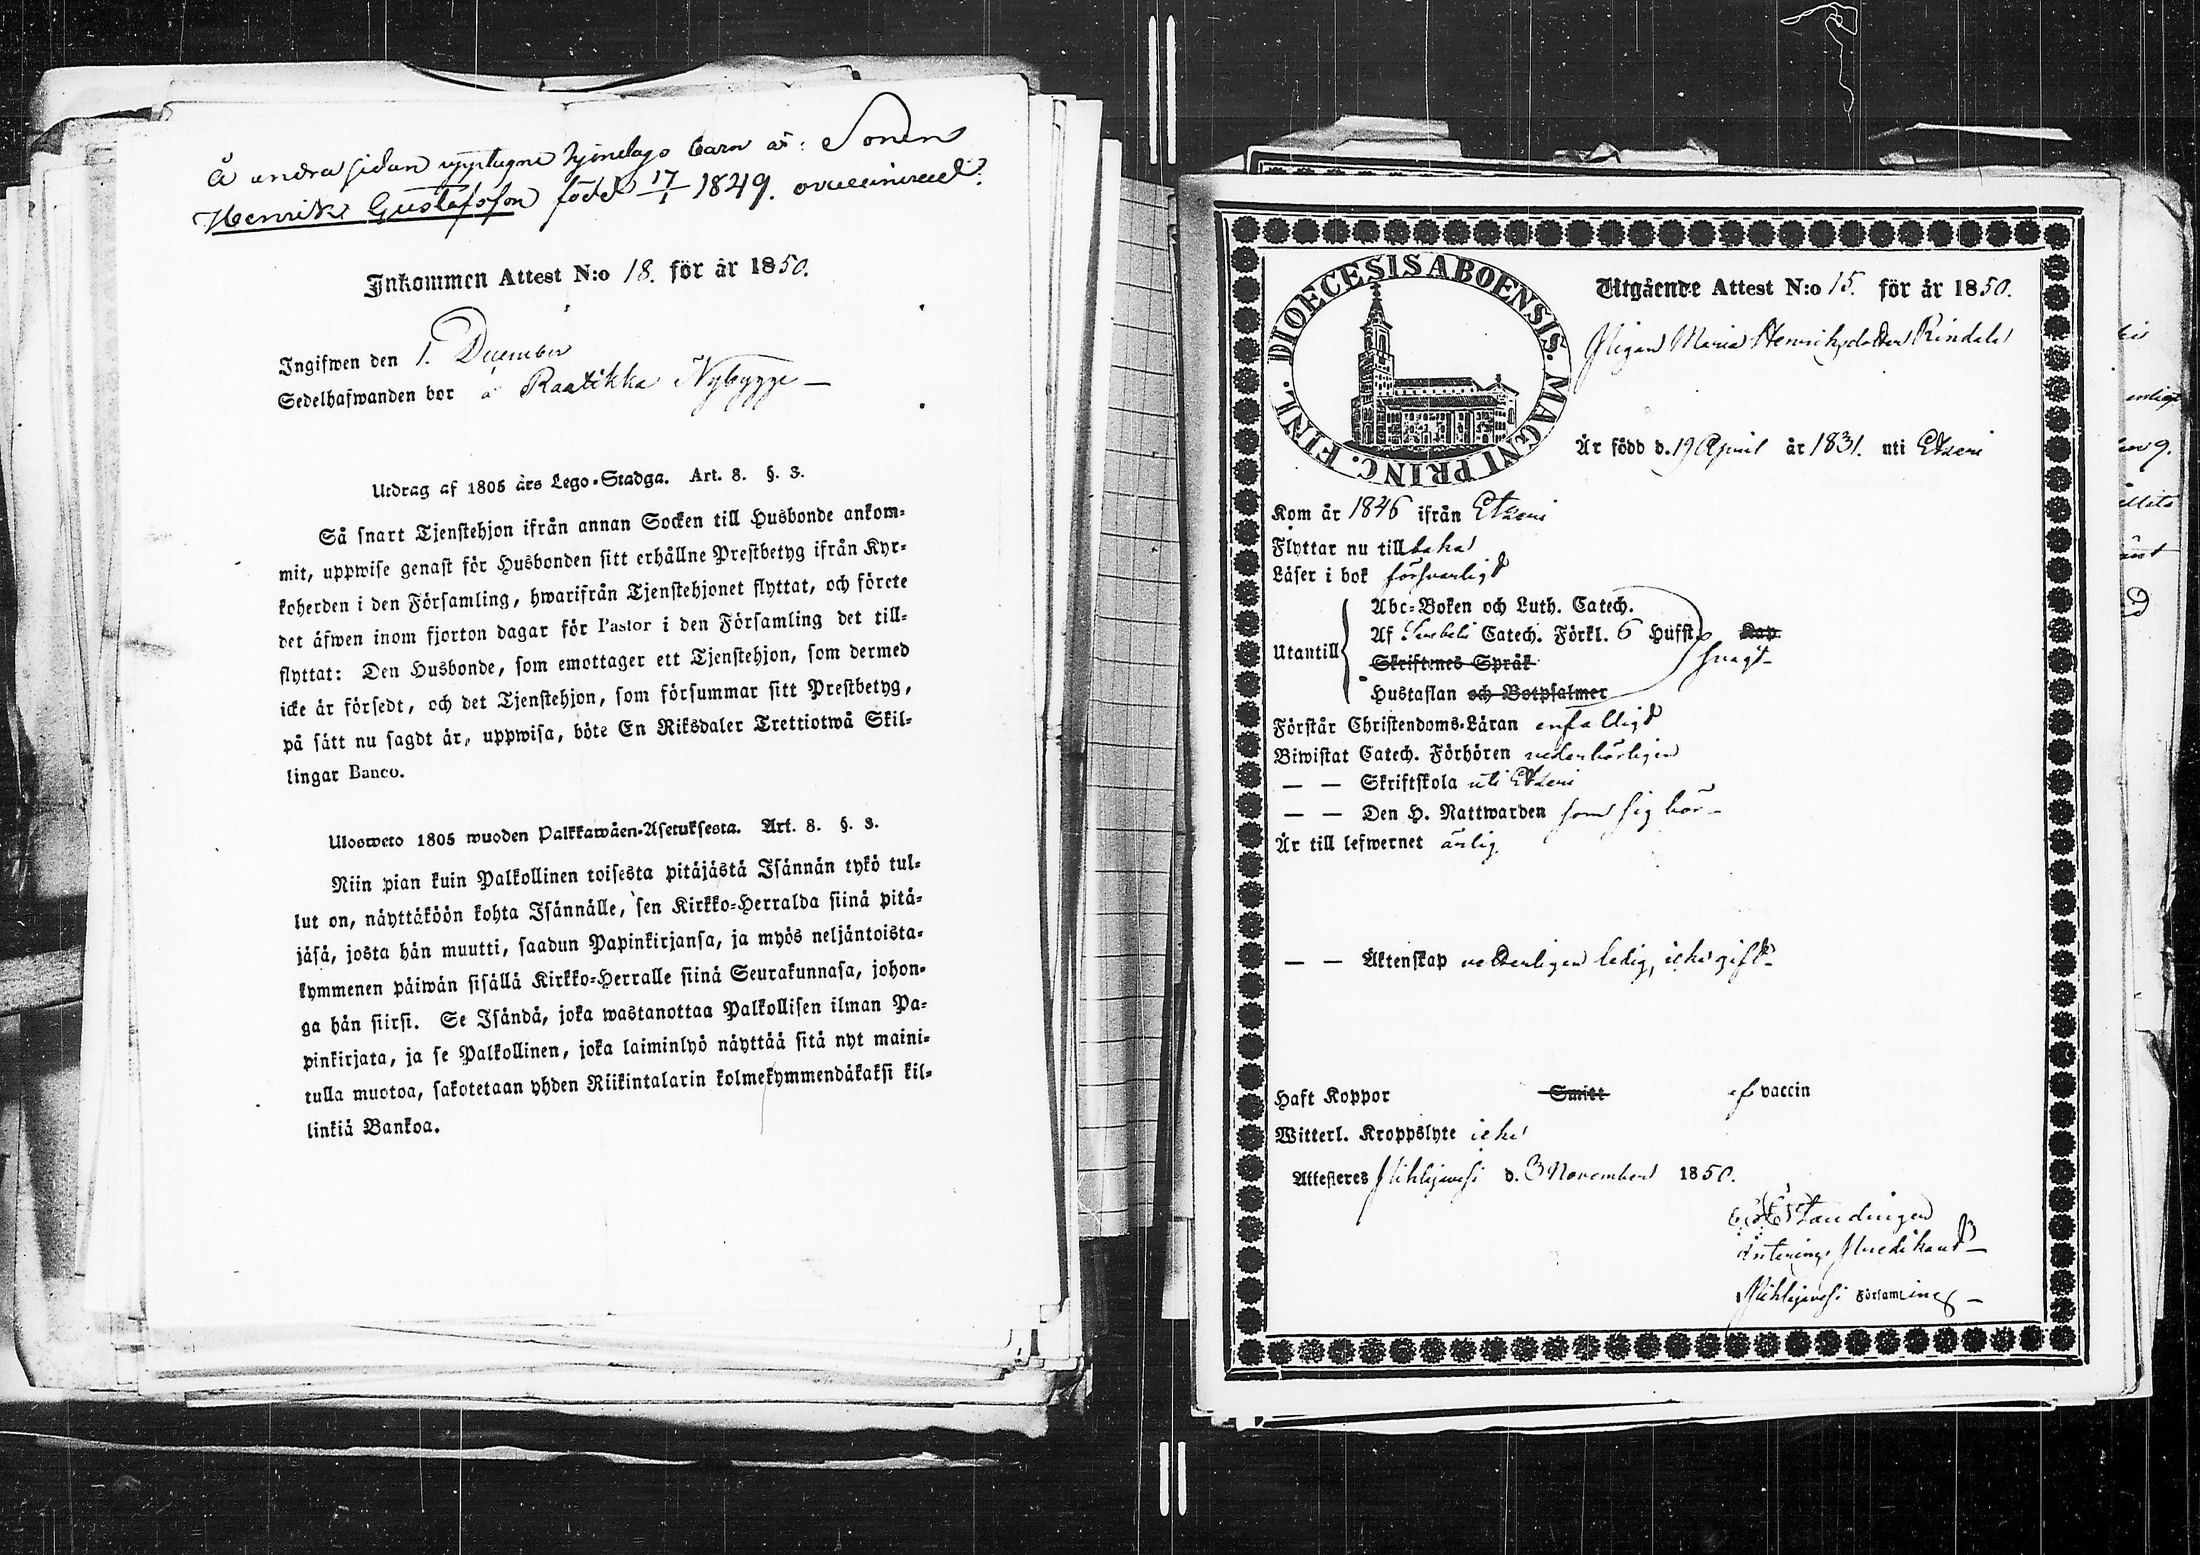 å andra sidan upptagne hjonelags barn är: Sonen
Henrik Gustafsson född 17/1 1849. ovaccinerad.
Inkommen Attest N:o 18. för år 1850.
Ingifwen den 1. December
Sedelhafwanden bor å Raatikka Nybygge —
Utdrag af 1805 års Lego-Stadga. Art. 8. §. 3.
Så snart Tjenstehjon ifrån annan Socken till Husbonde ankom-
mit, uppwise genast för Husbonden sitt erhållne Prestbetyg ifrån Kyr-
koherden i den Församling, hwarifrån Tjenstehjonet flyttat, och förete
det äfwen inom fjorton dagar för Pastor i den Församling det till-
flyttat: Den Husbonde, som emottager ett Tjenstehjon, som dermed
icke är försedt, och det Tjenstehjon, som försummar sitt Prestbetyg,
på sätt nu sagdt är, uppwisa, böte En Riksdaler Trettiotwå Skil-
lingar Banco.
Ulosweto 1805 wuoden Palkkawäen-Asetuksesta. Art. 8. §. 3.
Niin pian kuin Palkollinen toisesta pitäjästä Isännän tykö tul-
lut on, näyttäköön kohta Isännälle, sen Kirkko-Herralda siinä pitä-
jäsä, josta hän muutti, saadun Papinkirjansa, ja myös neljäntoista-
kymmenen päiwän sisällä Kirkko-Herralle siinä Seurakunnasa, johon-
ga hän siirsi. Se Isändä, joka wastanottaa Palkollisen ilman Pa-
pinkirjata, ja se Palkollinen, joka laiminlyö näyttää sitä nyt maini-
tulla muotoa, sakotetaan yhden Riikintalarin kolmekymmendäkaksi kil-
linkiä Bankoa.
DIOECESIS ABOENSIS. MAGNI PRINC. FINL.
Utgående Attest N:o 15. för år 1850.
Pigan Maria Henriksdotter Rindala
Är född d. 19 April år 1831. uti Etseri
Kom år 1846 ifrån Etseri
Flyttar nu tillbaka
Läser i bok försvarligt
Abc-Boken och Luth. Catech.
Utantill Af Svebelii Catech. Förkl. 6 Hufst. Kap.
Skriftenes Språk svagt
Hustaflan och Botpsalmer
Förstår Christendoms-Läran enfaldigt
Biwistat Catech. Förhören vederbörligen
— — Skriftskola uti Etseri
— — Den H. Nattwarden som sig bör —
Är till lefwernet ärlig
— — Äktenskap veterligen ledig, icke gift
Haft Koppor Smitt af vaccin
Witterl. Kroppslyte icke
Attesteres Pihlajavesi d. 3 November 1850.
Pihlajavesi Församling —